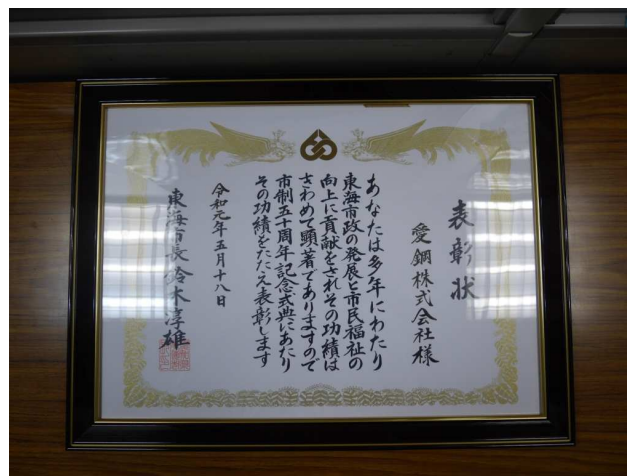 表彰状
愛鋼株式会社様
あなたは多年にわたり
東海市政の発展と市民福祉の
向上に貢献をされその功績は
きわめて顕著でありますので
市制五十周年記念式典にあたり
その功績をたたえ表彰します
令和元年五月十八日
東海市長 鈴木淳雄